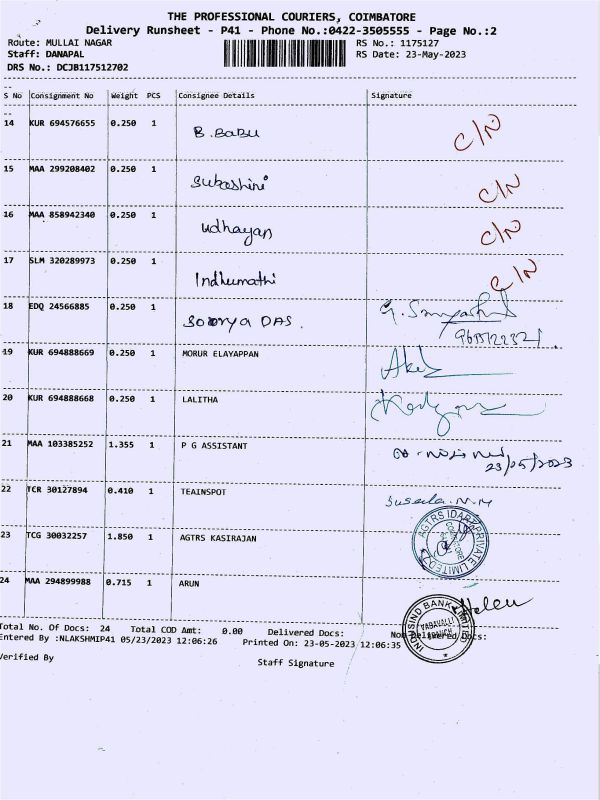 THE PROFESSIONAL COURIERS, COIMBATORE
Delivery Runsheet - P41 - Phone No.:0422-3505555 - Page No.:2
Route: MULLAI NAGAR RS No.: 1175127
Staff: DANAPAL RS Date: 23-May-2023
DRS No.: DCJB117512702
S No Consignment No Weight PCS Consignee Details Signature
14 KUR 694576655 0.250 1 B.BaBu C/N
15 MAA 299208402 0.250 1 Subashini C/N
16 MAA 858942340 0.250 1 udhayan C/N
17 SLM 320289973 0.250 1 Indhumathi C/N
18 EDQ 24566885 0.250 1 Soorya DAS.
19 KUR 694888669 0.250 1 MORUR ELAYAPPAN
20 KUR 694888668 0.250 1 LALITHA
21 MAA 103385252 1.355 1 P G ASSISTANT
23/05/2023
22 TCR 30127894 0.410 1 TEAINSPOT Suseela.N.M
23 TCG 30032257 1.850 1 AGTRS KASIRAJAN AGTRS IDARZ PRIVATE LIMITED COIMBATORE
24 MAA 294899988 0.715 1 ARUN Helen
INDUSIND BANK LIMITED BRANCH
Total No. Of Docs: 24 Total COD Amt: 0.00 Delivered Docs: Non-Delivered Docs:
Entered By :NLAKSHMIP41 05/23/2023 12:06:26 Printed On: 23-05-2023 12:06:35
Verified By Staff Signature